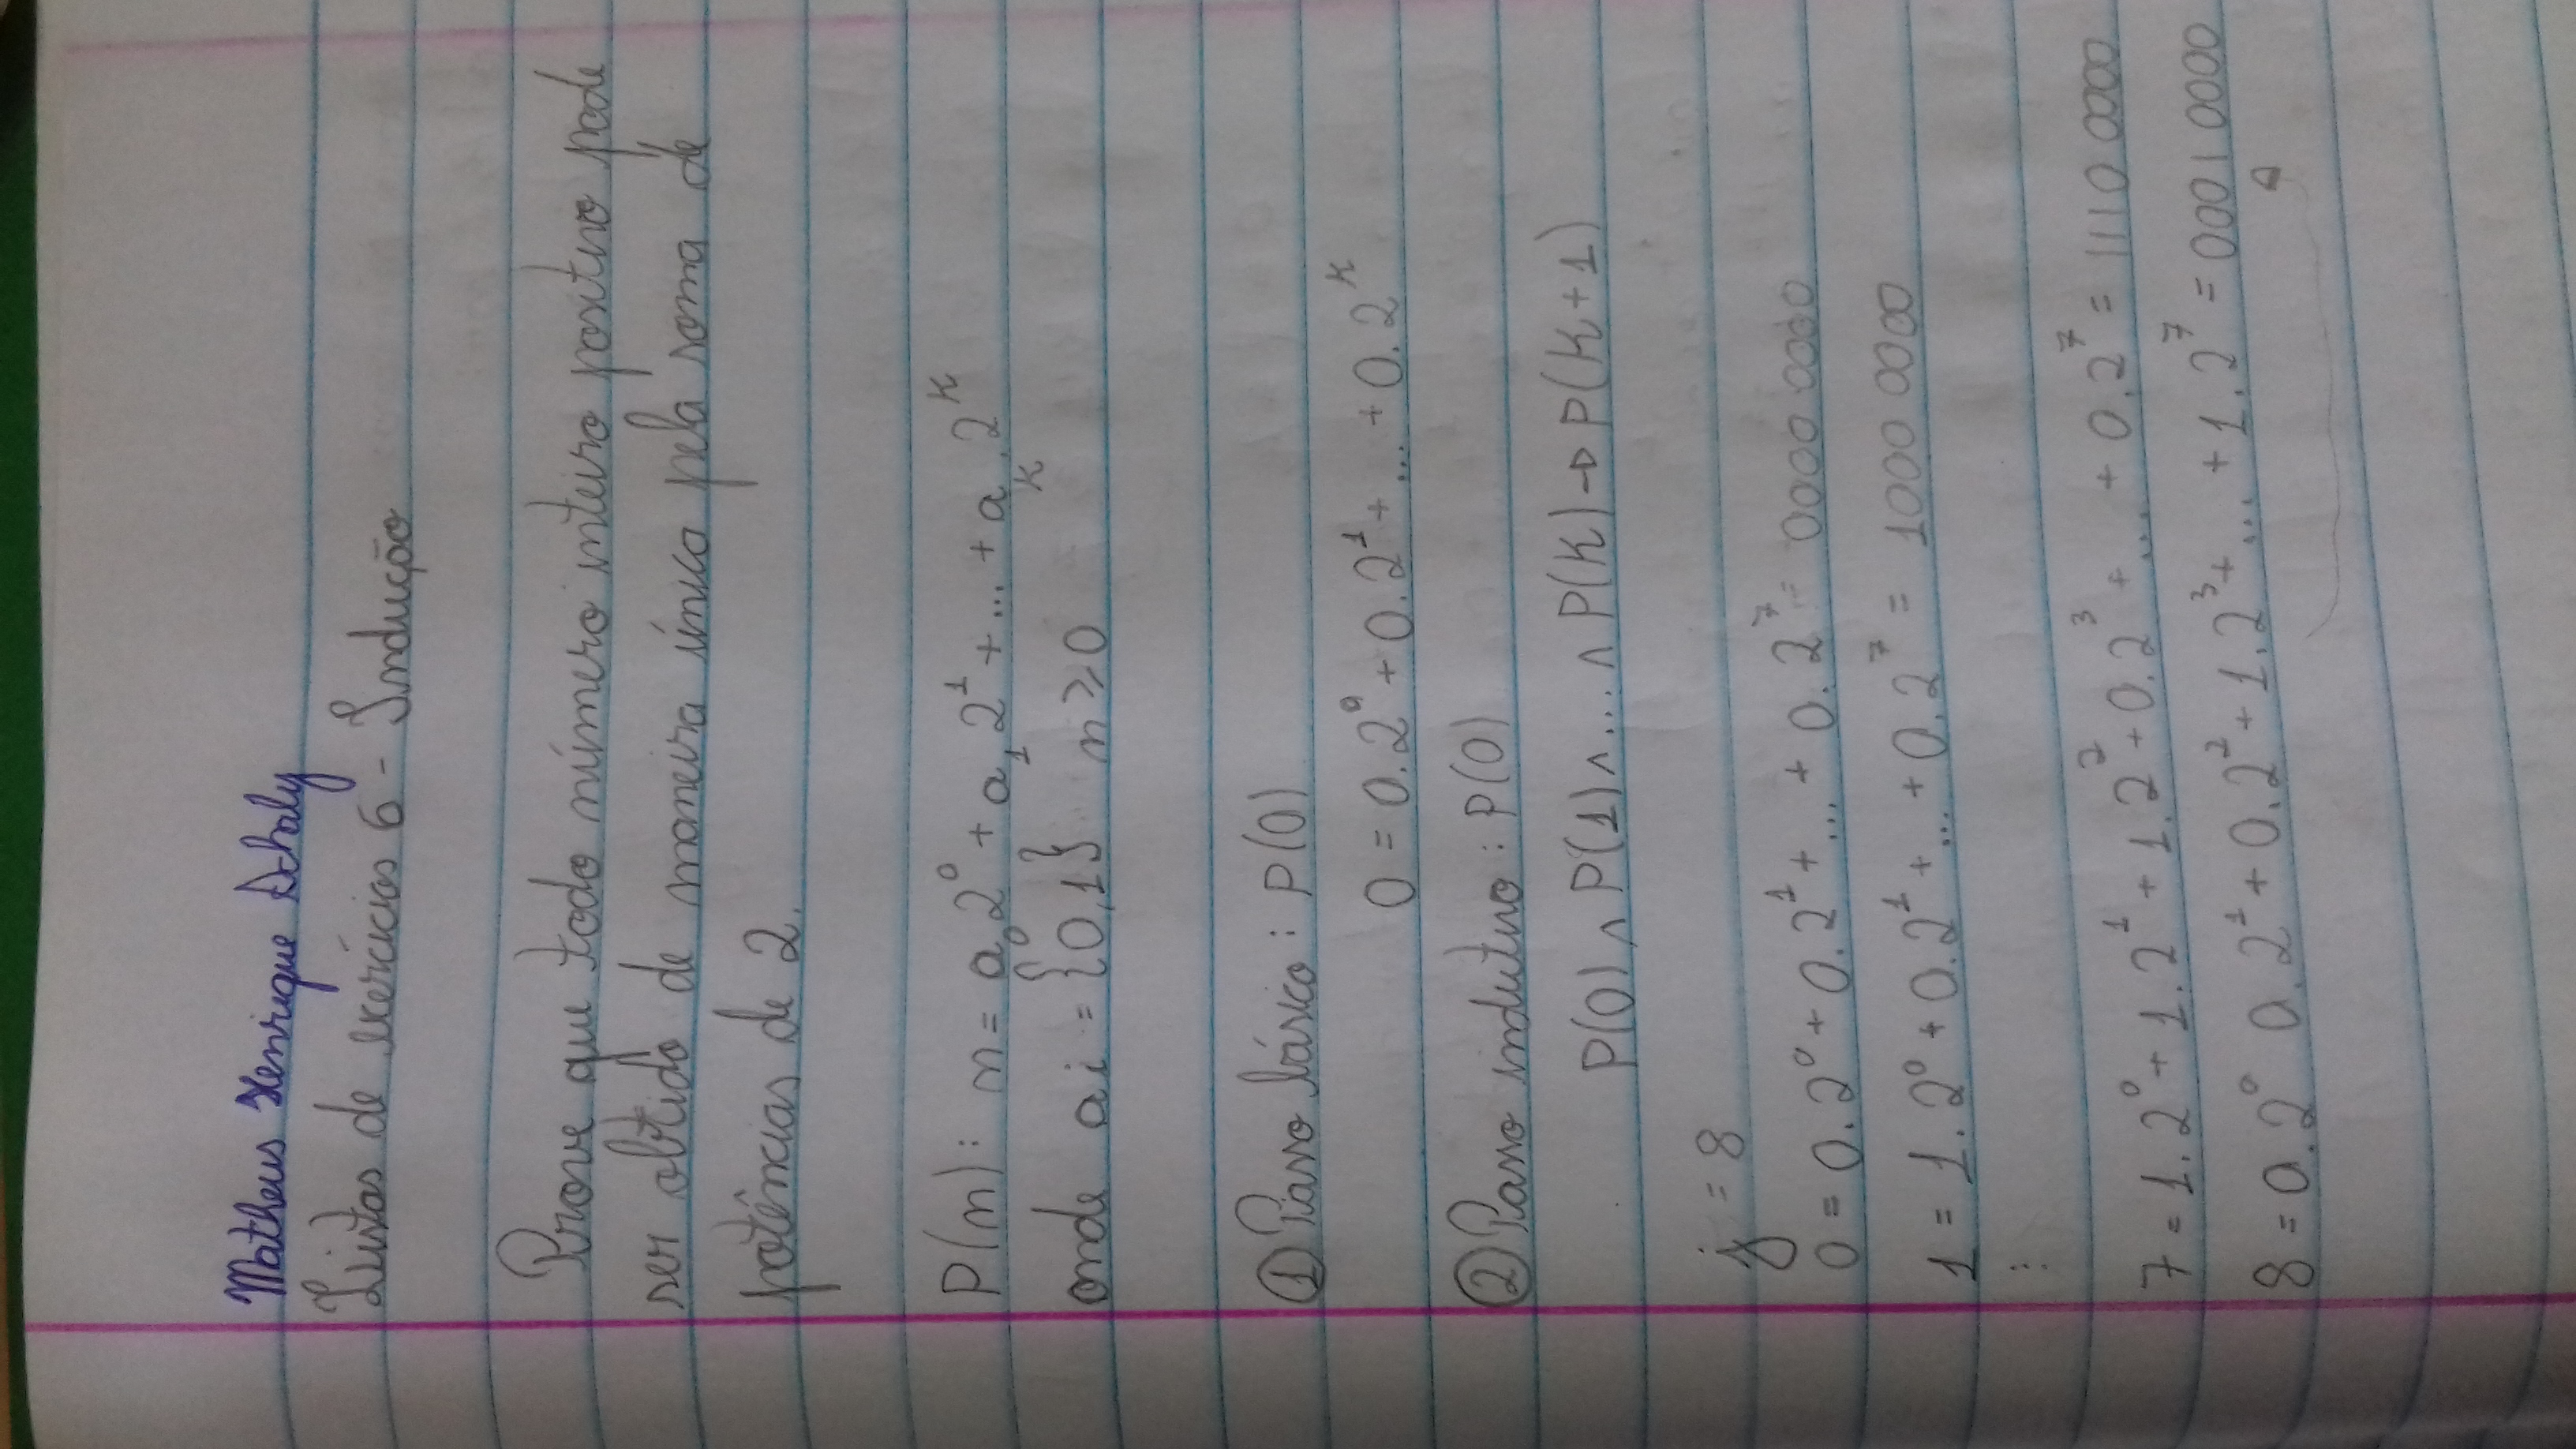 Matheus Henrique Schaly
Listas de exercícios 6 - Indução
Prove que todo número inteiro positivo pode
ser obtido de maneira única pela soma de
potências de 2.
P(n): n = a₀2⁰ + a₁2¹ + ... + aₖ.2ᵏ
onde ai = {0,1} n ≥ 0
① Passo básico: P(0)
0 = 0.2⁰ + 0.2¹ + ... + 0.2ᵏ
② Passo indutivo: P(0)
P(0) ∧ P(1) ∧ ... ∧ P(K) → P(K+1)
j = 8
0 = 0.2⁰ + 0.2¹ + ... + 0.2⁷ = 0000 0000
1 = 1.2⁰ + 0.2¹ + ... + 0.2⁷ = 1000 0000
⋮
7 = 1.2⁰ + 1.2¹ + 1.2² + 0.2³ + ... + 0.2⁷ = 1110 0000
8 = 0.2⁰ 0.2¹ + 0.2² + 1.2³ + ... + 1.2⁷ = 0001 0000